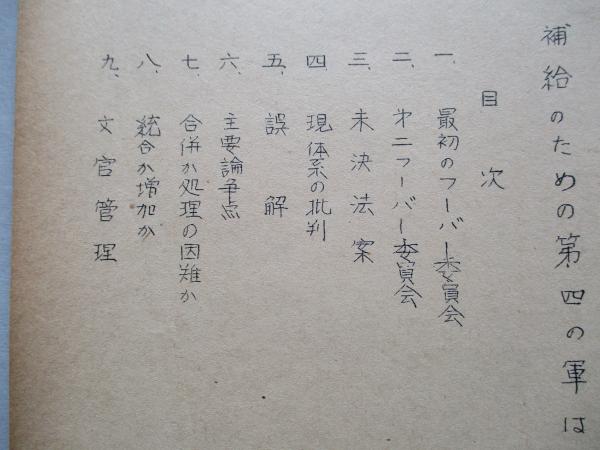 補給のための第四の軍は
目次
一、最初のフーバー委員会
二、才二フーバー委員会
三、未決法案
四、現体系の批判
五、誤解
六、主要論争点
七、合併か処理の困難か
八、統合か増加か
九、文官管理